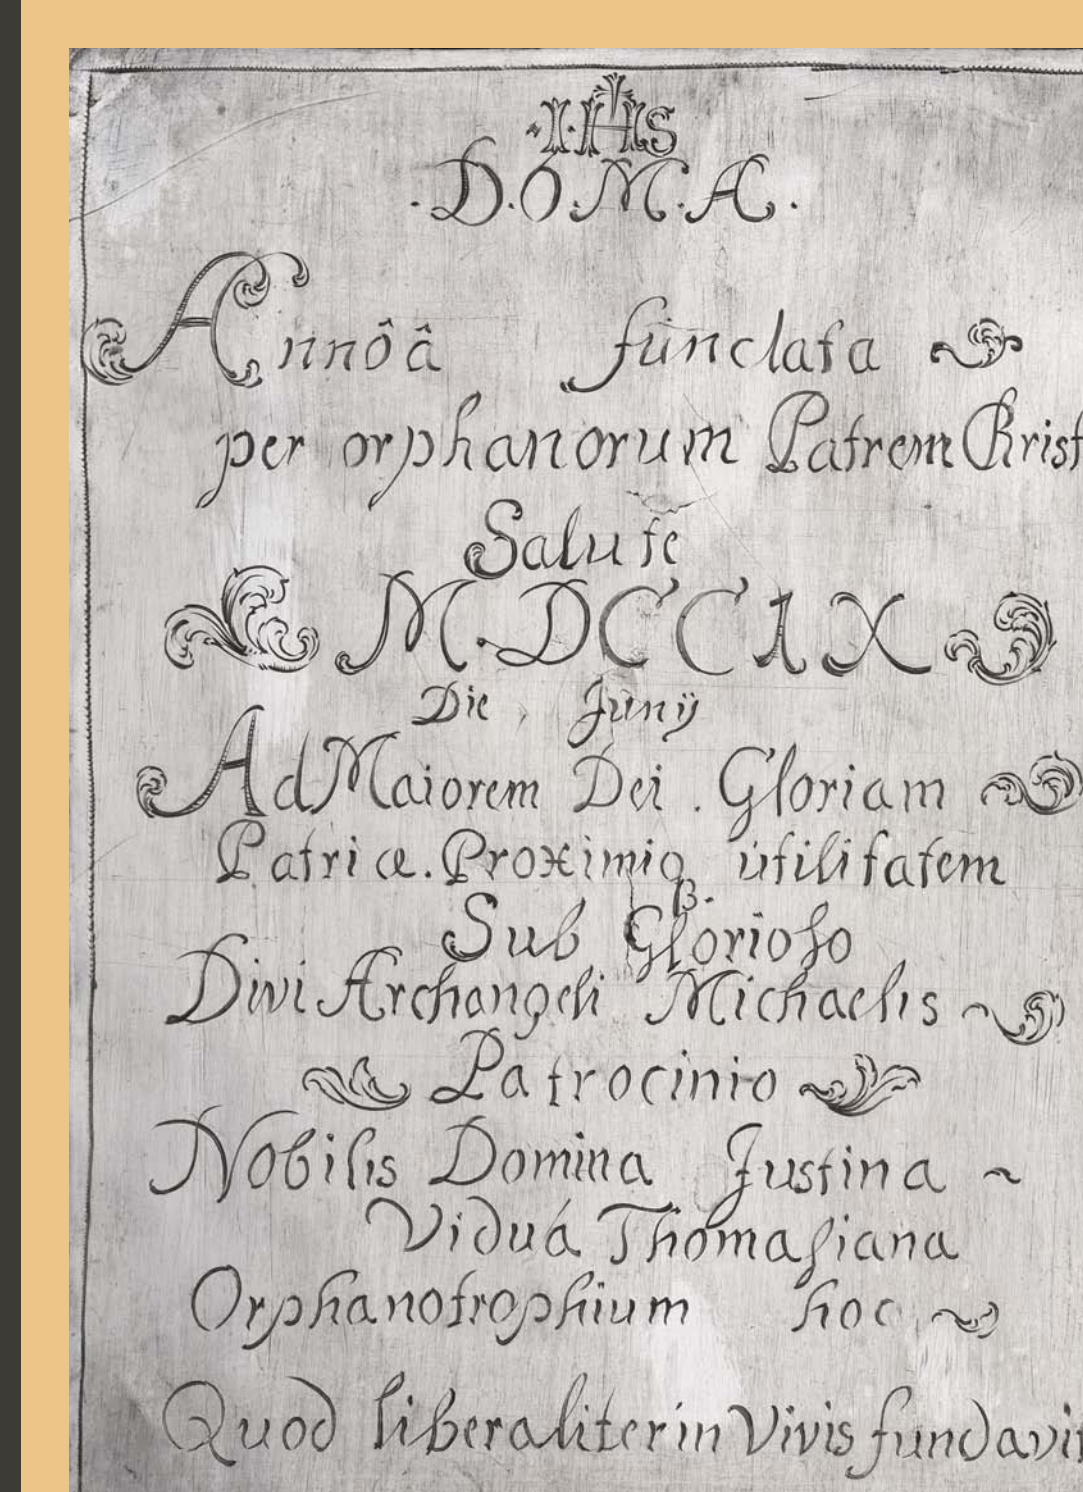 IHS
·D·O·M·A·
Annô â fùnclata
per orphanorum Patrem Christ
Salute
M·DCCIX
Die Junÿ
Ad Maiorem Dei . Gloriam
Patriæ. Proximiq ùtilitatem
Sub Glorioso
Divi Archangeli Michaelis
Patrocinio
Nobilis Domina Justina ~
Viduá Thomasiana
Orphanotrophium hoc
Quod liberaliter in Vivis fundavit